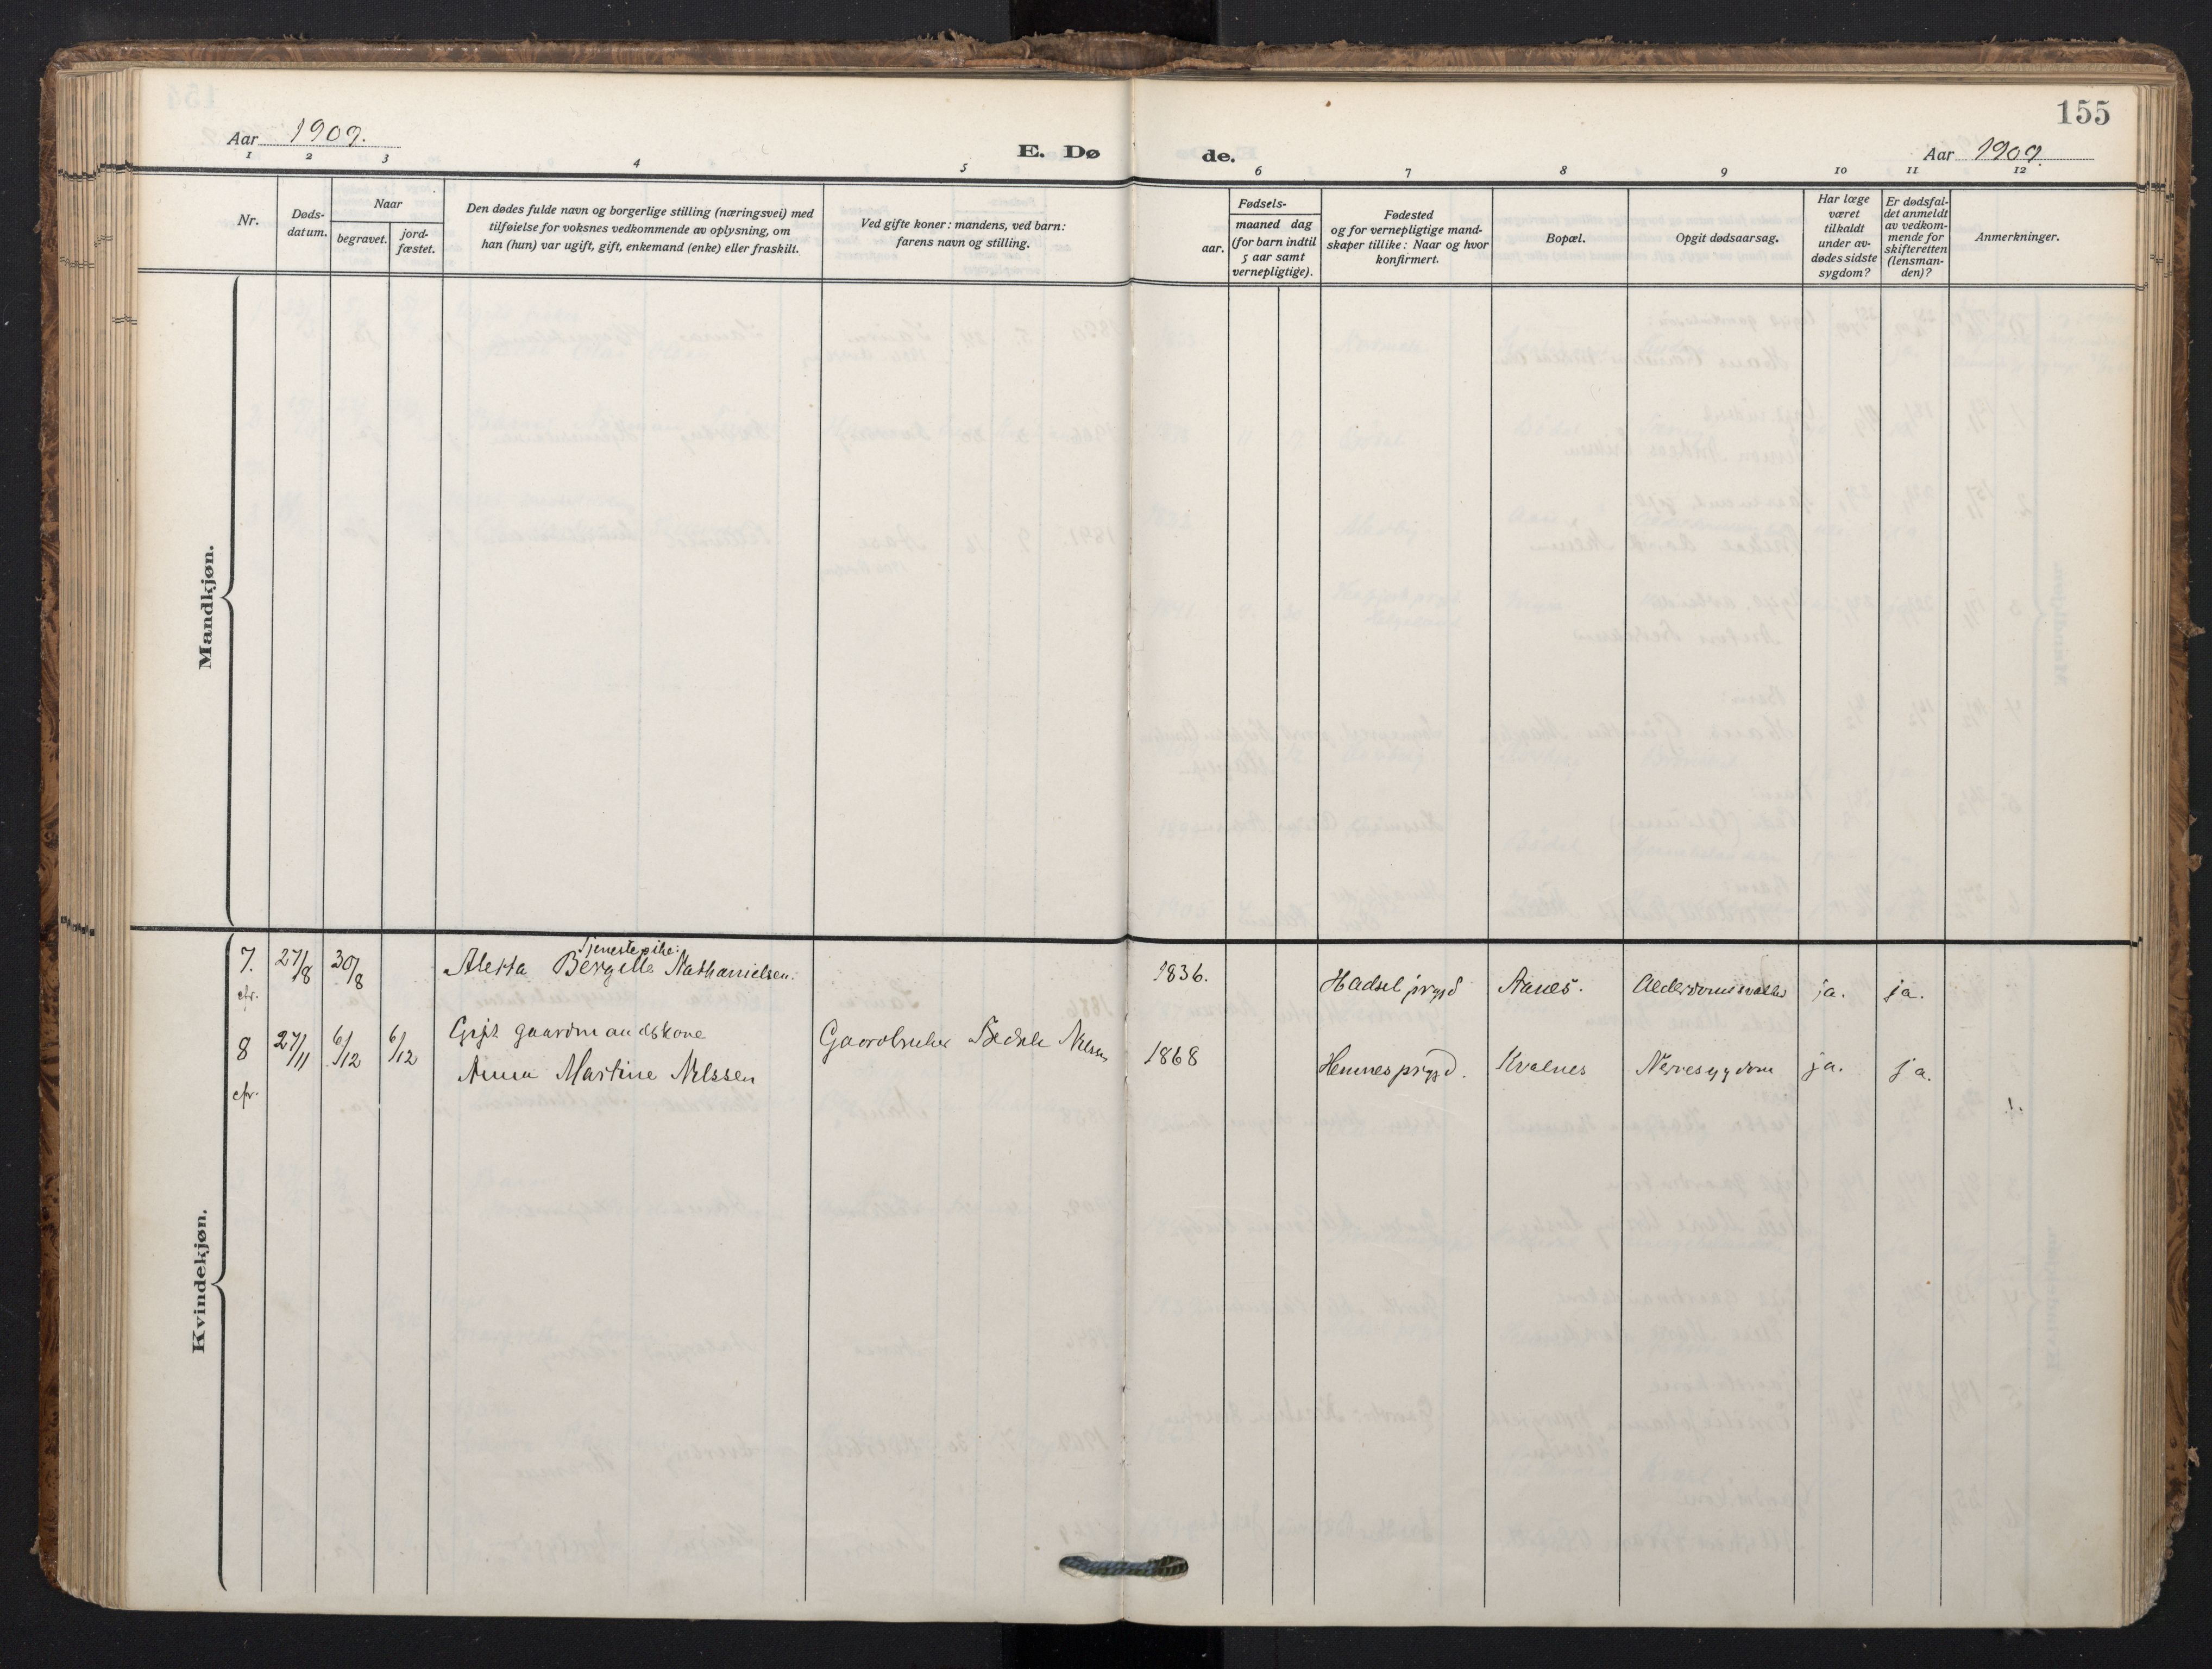 155
Aar 1909.
E. Dø
de.
Aar 1909.
1 2 3 4 5 6 7 8 9 10 11 12
Nr.
Døds-
datum.
Naar
begravet.
jord-
fæstet.
Den dødes fulde navn og borgerlige stilling (næringsvei) med
tilføielse for voksnes vedkommende av oplysning, om
han (hun) var ugift, gift, enkemand (enke) eller fraskilt.
Ved gifte koner: mandens, ved barn:
farens navn og stilling.
Fødsels-
aar.
maaned dag
(for barn indtil
5 aar samt
vernepligtige).
Fødested
og for vernepligtige mand-
skaper tillike: Naar og hvor
konfirmert.
Bopæl.
Opgit dødsaarsag.
Har læge
været
tilkaldt
under av-
dødes sidste
sygdom?
Er dødsfal-
det anmeldt
av vedkom-
mende for
skifteretten
(lensman-
den)?
Anmerkninger.
Mandkjøn.
Kvindekjøn.
Tjenestepike:
7. 27/8 30/8 Aletta Bergitte Nathanielsen. 1836. Hadsel prgjd Aanes. Alderdomssvakhet ja. ja.
cfr.
Gift gaardmandskone
8 27/11 6/12 6/12 Anna Martine Nilssen Gaardbruker Nilssen 1868 Hemnes prgjd. Kvalnes Nervesygdom ja. ja.
cfr.